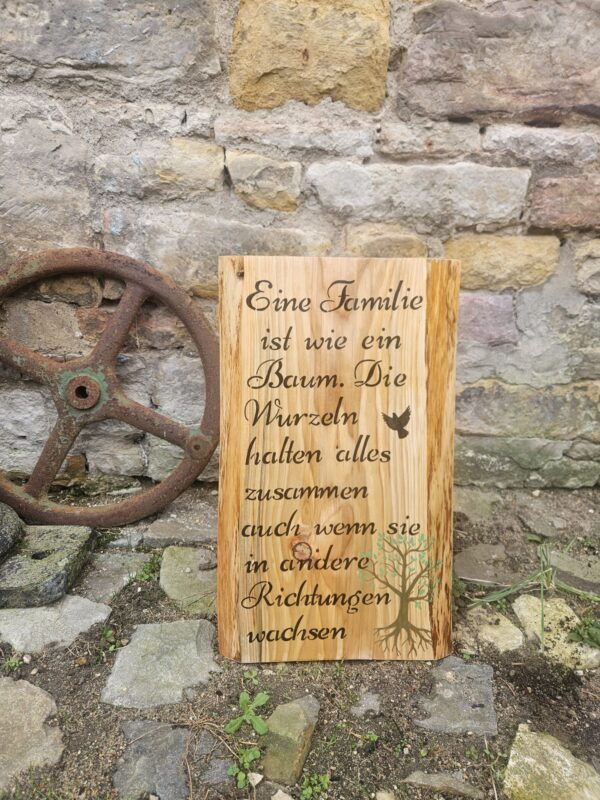 Eine Familie
ist wie ein
Baum. Die
Wurzeln
halten alles
zusammen
auch wenn sie
in andere
Richtungen
wachsen